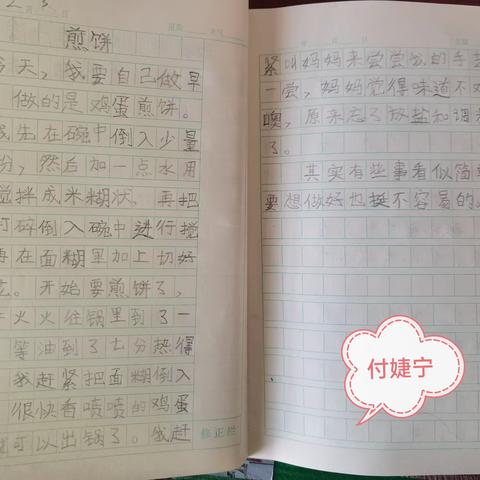 煎饼
今天，我要自己做早
做的是鸡蛋煎饼。
我先在碗中倒入少量
粉，然后加一点水用
搅拌成米糊状。再把
打碎倒入碗中进行搅
再在面糊里加上切好
。开始要煎饼了，
开火火往锅里到了一
等油到了七分热得
我赶紧把面糊倒入
很快香喷喷的鸡蛋
就可以出锅了。我赶
修正栏
紧叫妈妈来尝尝我的手艺
一尝，妈妈觉得味道不对
噢，原来忘了放盐和调料
了。
其实有些事看似简单
要想做好也挺不容易的。
付婕宁